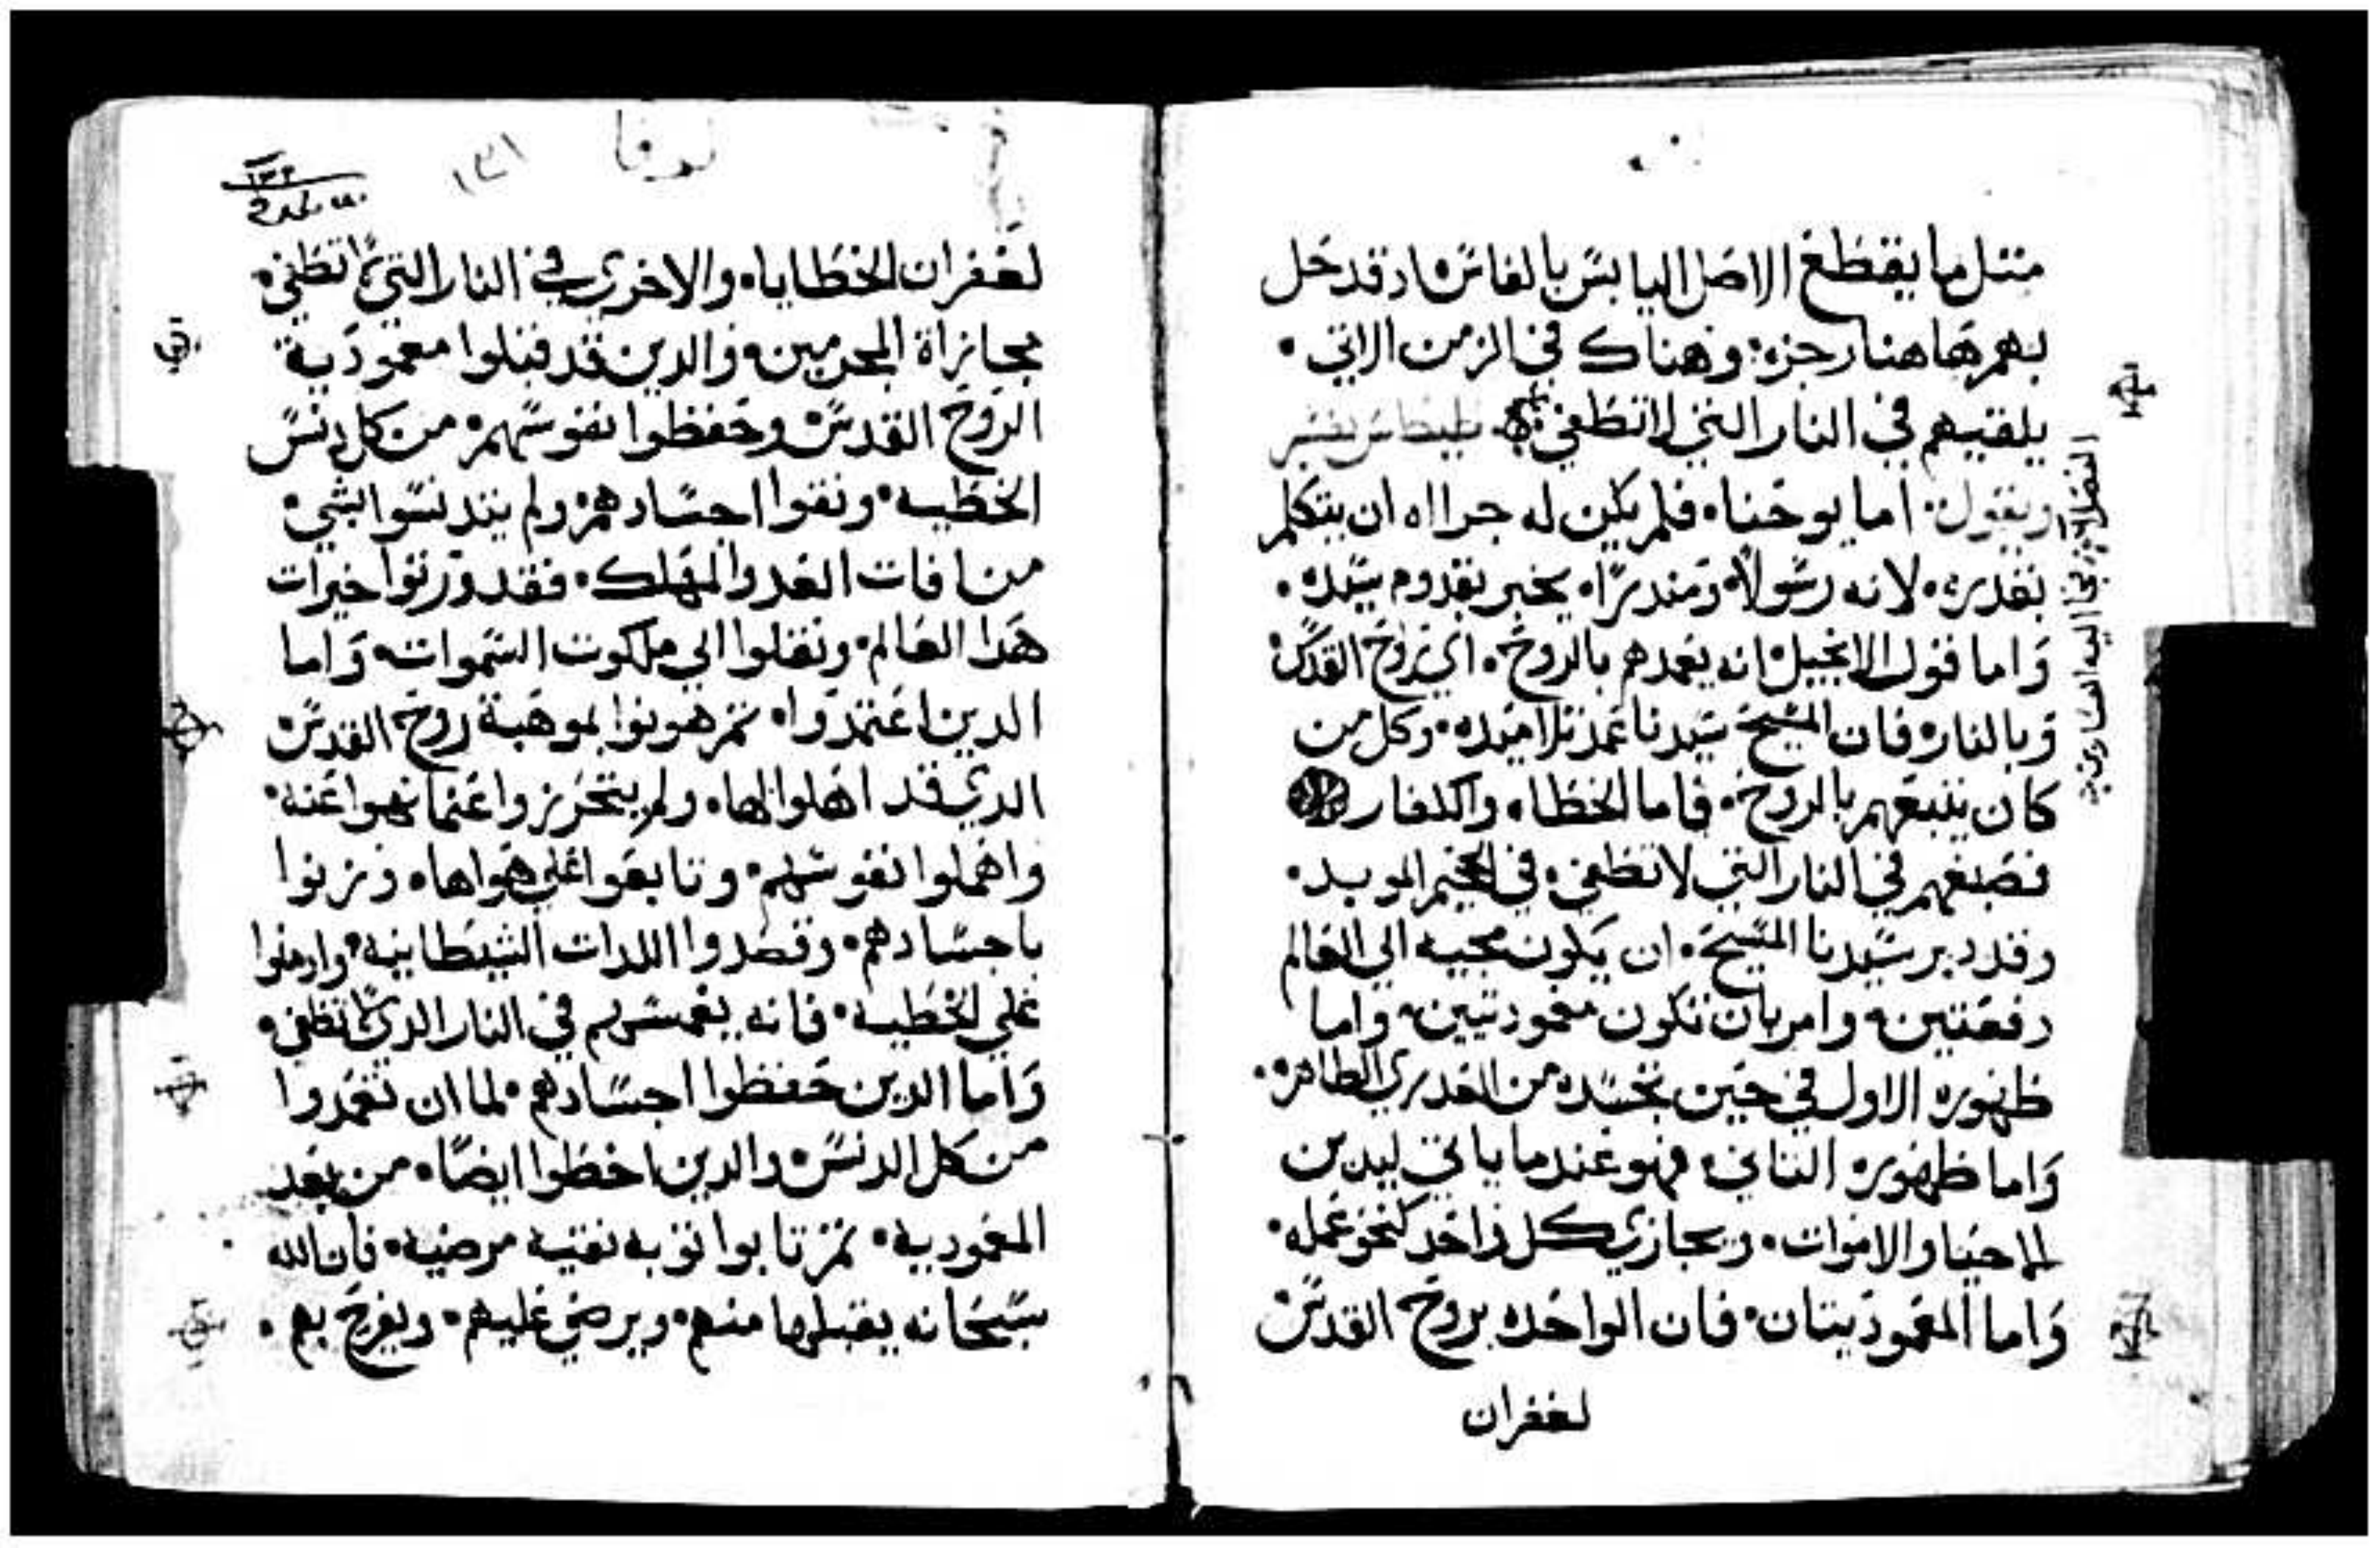 متل ما يقطع الاصل اليابس بالفاس ادقد حل
بهم هاهنا رجزه وهناك في الزمن الاتي
يلقيهم في النار التي لا تطفي طيطاس يفسر
ويقول اما يوحنا فلم يكن له جرااه ان يتكلم
بقدره لانه رسولا ومندرا يخبر بقدوم سيده
واما قول الانجيل انه يعمدهم بالروح اي بروح القدس
وبالنار فان المسيح سيدنا عمد تلاميده وكل من
كان يتبعهم بالروح فاما الخطاه والكفار
فصبغهم في النار التي لا تطفي في الجحيم الموبد
وقد دبر سيدنا المسيح ان يكون مجيه الي العالم
دفعتين وامر بان تكون معموديتين واما
ظهوره الاول في حين تجسده من العدري الطاهره
واما ظهوره التاني فهو عندما ياتي ليدين
للاحيا والاموات ويجازي كل واحد كنحو عمله
واما المعموديتان فان الواحده بروح القدس
لغفران
نوفا
١٣١
١٣٢
لغفران الخطايا والاخري في النار التي لا تطفي
مجازاة المجرمين والدين قد قبلوا معمودية
الروح القدس وحفظوا نفوسهم من كل دنس
الخطيه ونقوا اجسادهم ولم يتدنسوا بشي
من افات العدو المهلك فقد ورتوا خيرات
هدا العالم ونقلوا الي ملكوت السموات واما
الدين اعتمدوا تم هونوا بموهبة روح القدس
الدي قد اهلوا لها ولم يتحرزوا عنما نهوا عنه
واهملوا نفوسهم وتابعوا علي هواها وزنوا
باجسادهم وقصدوا اللدات الشيطانيه وادمنوا
علي الخطيه فانه يغمسهم في النار الدي لا تطفي
واما الدين حفظوا اجسادهم لما ان تعمدوا
من كل الدنس والدين اخطوا ايضا من بعد
المعموديه تم تابوا توبه نقيه مرضيه فان الله
سبحانه يقبلها منهم ويرضي عليهم ويفرح بهم